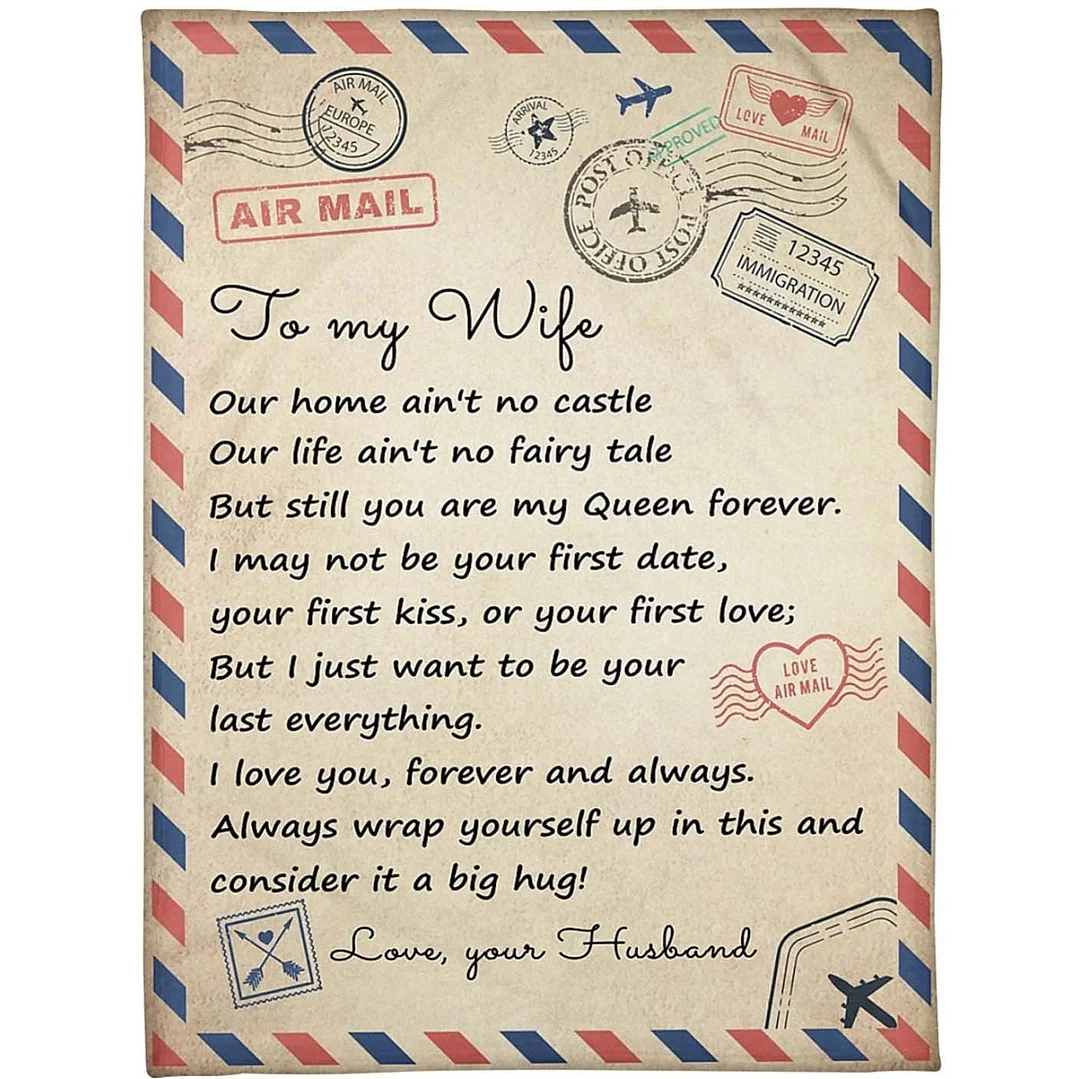 AIR MAIL
EUROPE
12345
ARRIVAL
12345
APPROVED
LOVE MAIL
POST OFFICE POST OFFICE
AIR MAIL
12345
IMMIGRATION
To my Wife
Our home ain't no castle
Our life ain't no fairy tale
But still you are my Queen forever.
I may not be your first date,
your first kiss, or your first love;
But I just want to be your
last everything.
LOVE
AIR MAIL
I love you, forever and always.
Always wrap yourself up in this and
consider it a big hug!
Love, your Husband